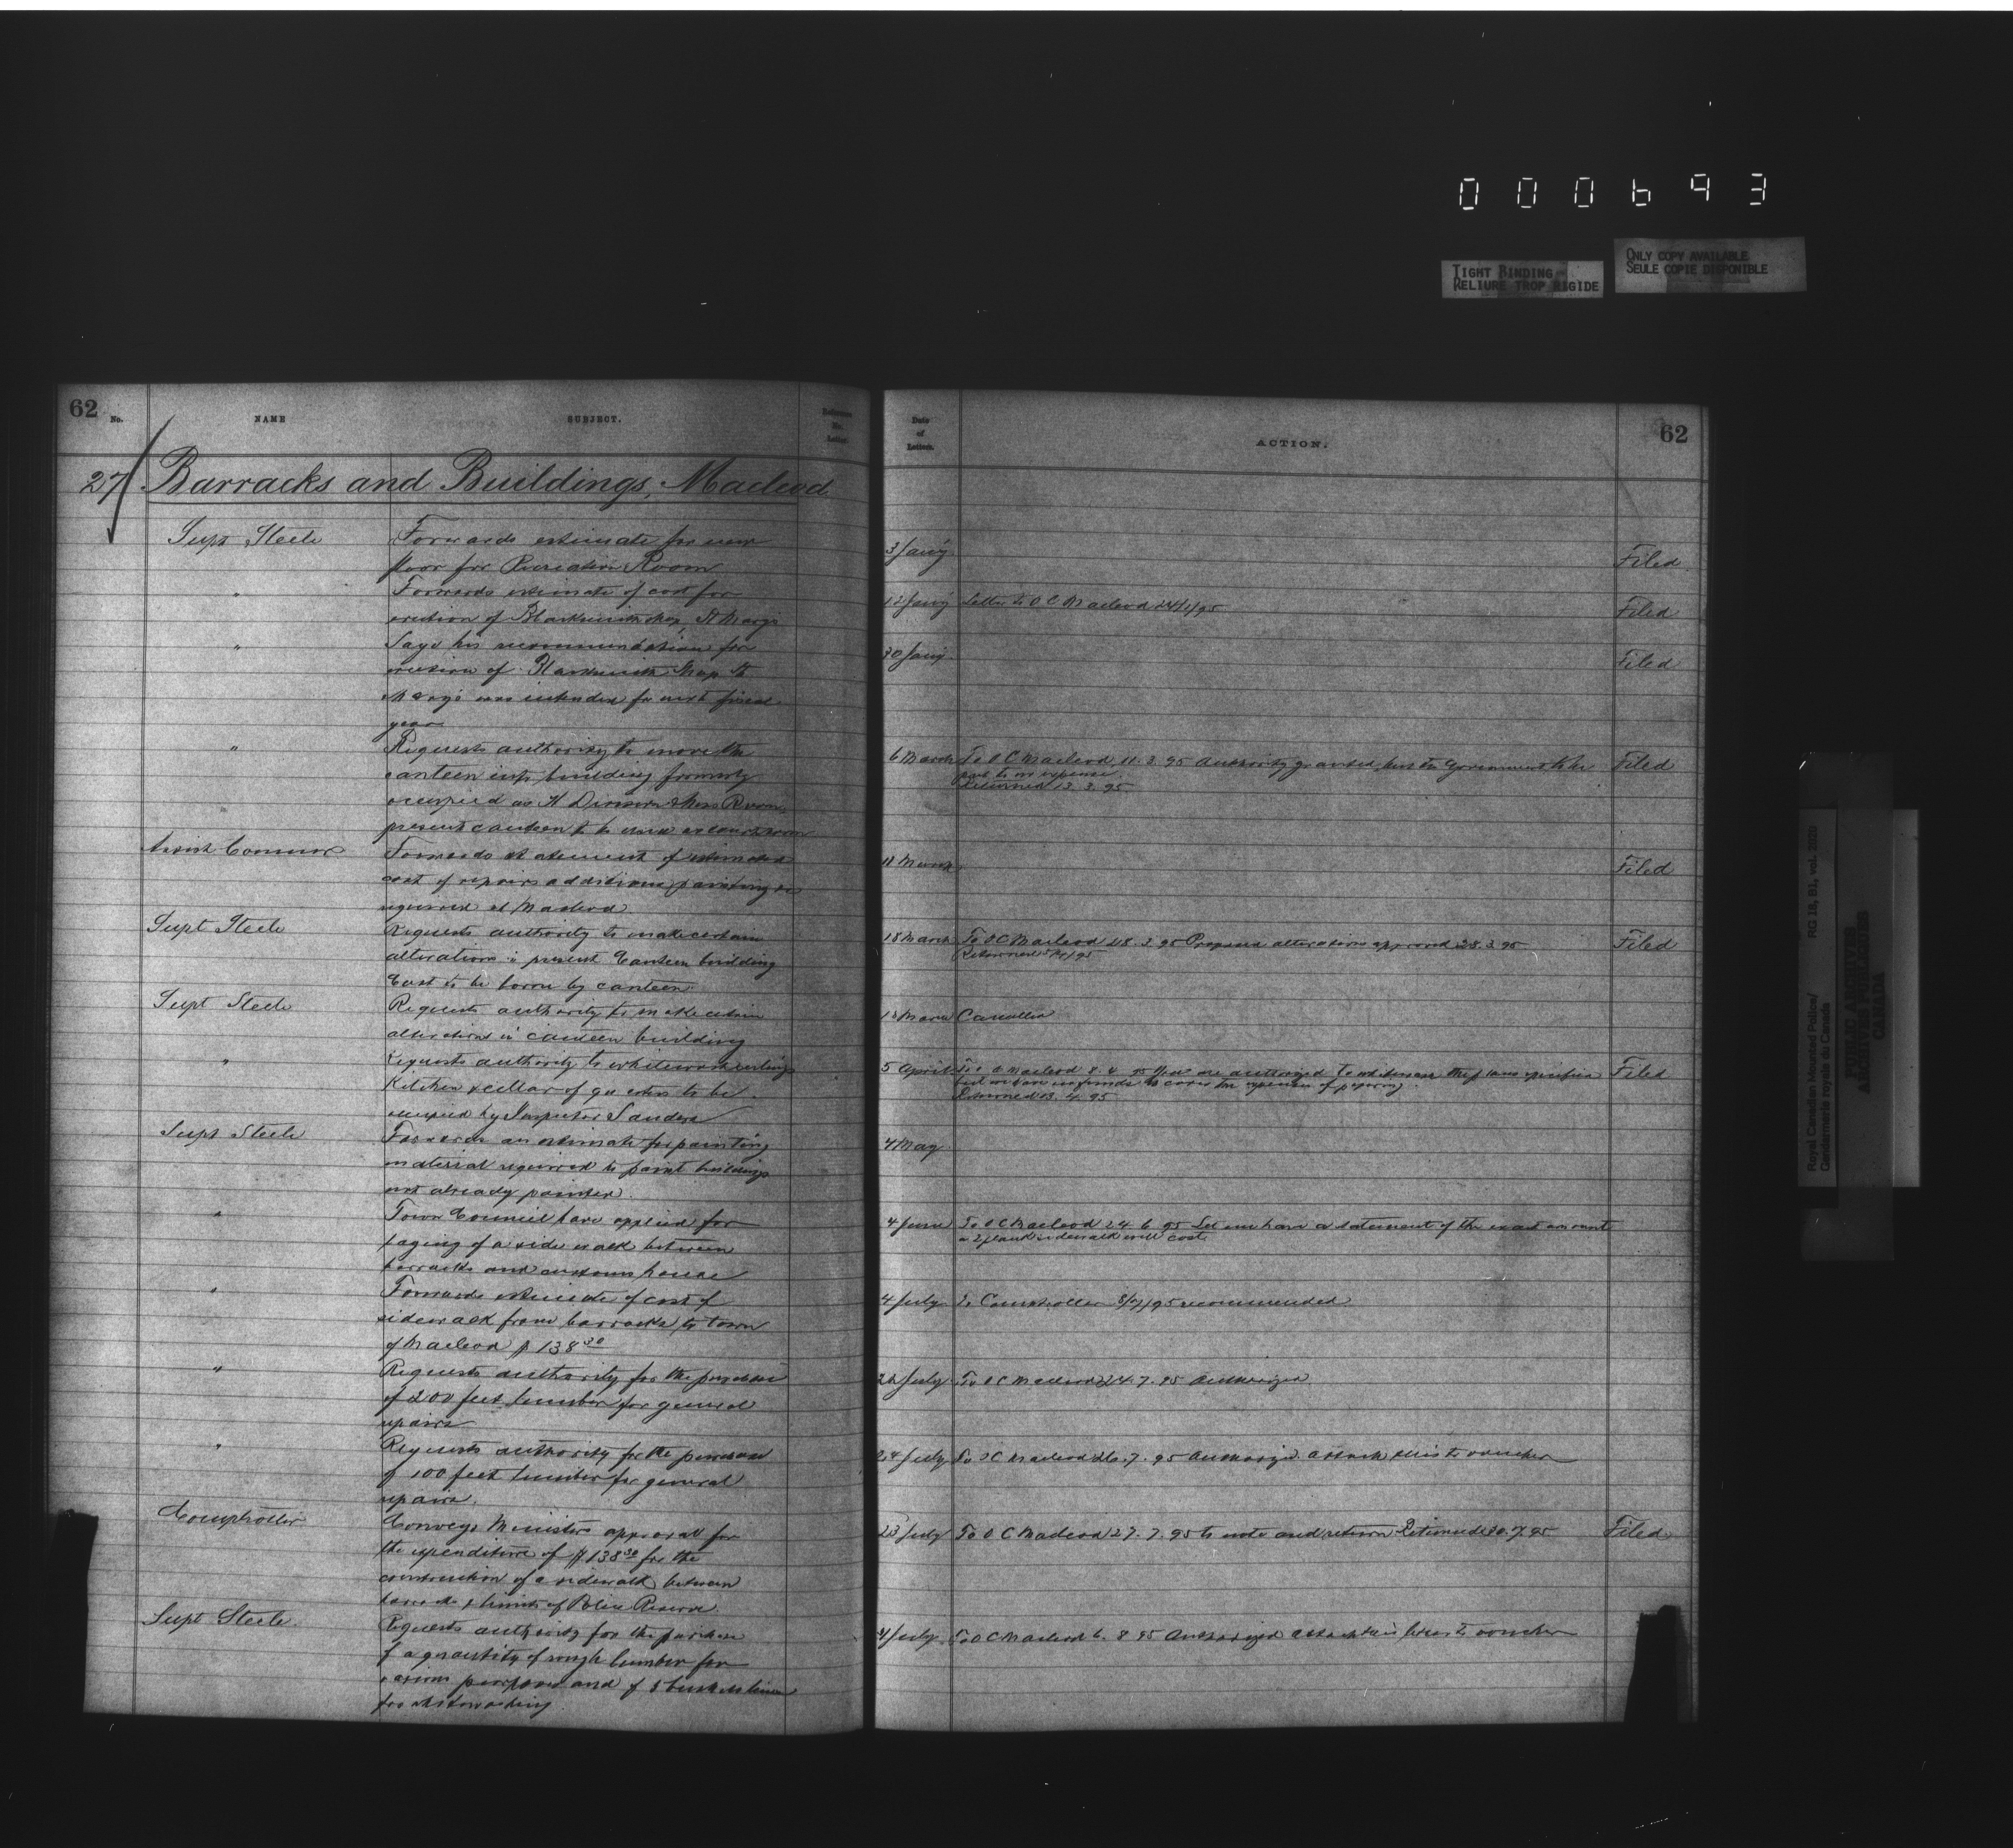 000693
TIGHT BINDING
RELIURE TROP RIGIDE
ONLY COPY AVAILABLE
SEULE COPIE DISPONIBLE
62
No.
NAME
SUBJECT.
Reference
No.
Letter.
27 Barracks and Buildings, Macleod
Supt Steele
Forwards estimate for new
floor for Recreation Room
"
Forwards estimate of cost for
erection of Blacksmith shop, St Marys
"
Says his recommendation for
erection of Blacksmith Shop St
Marys was intended for next fiscal
year
"
Requests authority to move the
canteen into building formerly
occupied as H Division Mess Room,
present canteen to be used as court room
Assist Commr
Forwards statement of estimated
cost of repairs additions painting
required at Macleod
Supt Steele
Requests authority to make certain
alterations in present Canteen building
Cost to be borne by canteen
Supt Steele
Requests authority to make certain
alterations in canteen building
"
Requests authority to whitewash ceilings
Kitchen & cellar of quarters to be
occupied by Inspector Sanders
Supt Steele
Forwards an estimate for painting
material required to paint buildings
not already painted
"
Town Council have applied for
laying of a side walk between
barracks and customs house
"
Forwards estimate of cost of
sidewalk from barracks to town
of Macleod $138.30
"
Requests authority for the purchase
of 200 feet lumber for general
repairs
"
Requests authority for the purchase
of 100 feet lumber for general
repairs
Comptroller
Conveys Ministers approval for
the expenditure of $138.30 for the
construction of a sidewalk between
barracks & limits of Police Reserve
Supt Steele
Requests authority for the purchase
of a quantity of rough lumber for
various purposes and of 5 bushels lime
for whitewashing
Date
of
Letters.
ACTION.
62
3 Jany
Filed
12 Jany Letter to O C Macleod 24/1/95 Filed
30 Jany Filed
6 March To O C Macleod 11.3.95 Authority granted, but the Government to be Filed
put to no expense.
Returned 13.3.95
11 March Filed
18 March To O C Macleod 28.3.95 Proposed alterations approved 28.3.95 Filed
Returned
18 March Cancelled
5 April To O C Macleod 8.4.95 You are authorized to whitewash the places specified Filed
but we have no funds to cover the expense of papering.
Returned 13.4.95
4 May
4 June To O C Macleod 24.6.95 Let me have a statement of the exact amount
a 2 plank sidewalk will cost
4 July To Comptroller 8/7/95 recommended
July To O C Macleod 24.7.95 Authorized
24 July To O C Macleod 26.7.95 Authorized attach this to voucher
23 July To O C Macleod 27.7.95 to note and return Returned 30.7.95 Filed
July To O C Macleod 6.8.95 Authorized attach this letter to voucher
Royal Canadian Mounted Police/
Gendarmerie royale du Canada
RG 18, B1, vol.
PUBLIC ARCHIVES
ARCHIVES PUBLIQUES
CANADA